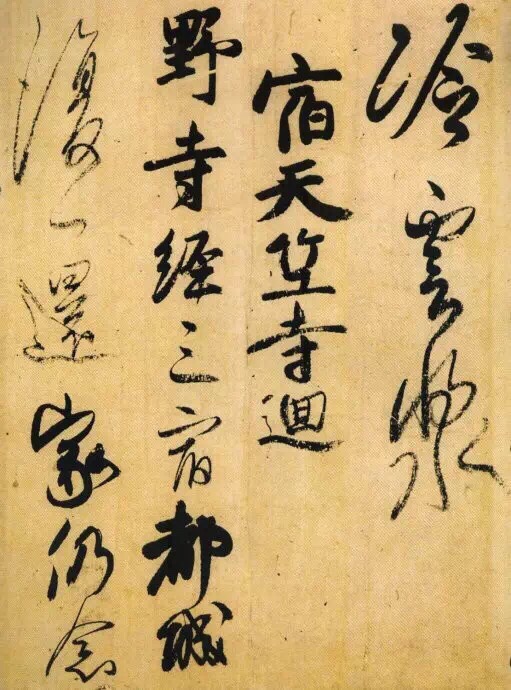 冷雲漿
宿天竺寺迴
野寺經三宿都城
復一還家仍念